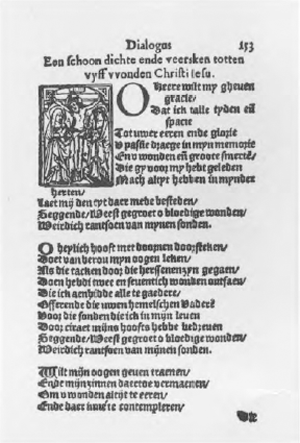 Dialogus 153
Een schoon dichte ende veersken totten
vijff wonden Christi Iesu.
O Heere wilt my gheven
gracie/
Dat ick talle tyden eñ
spacie
Tot uwer eeren ende glorie
U passie draege in myn memorie
Env wonden eñ groote smerte/
Die gy voor my hebt geleden
Mach altyt hebben in mynder
herten/
Laet mij den tyt daer mede besteden/
Seggende/ Weest gegroet o bloedige wonden/
Weirdich rantsoen van mynen sonden.
O heylich hooft met doornen doorsteken/
Doet van berou myn oogen leken/
Als die tacken door die herssenen zyn gegaen/
Doen hebdi twee en seventich wonden ontfaen/
Die ick aenbidde alle te gaedere/
Offerende die uwen hemelschen Vadere
Voor die sonden die ick in mijn leven
Door mijns hoofts hebbe bedreven
Seggende/ Weest gegroet o bloedige wonden/
Weirdich rantsoen van mijnen sonden.
Wilt mijn oogen geven traenen/
Ende mijn zinnen daertoe vermaenen/
Om u wonden altijt te eeren/
Ende daer inne te contempleren/